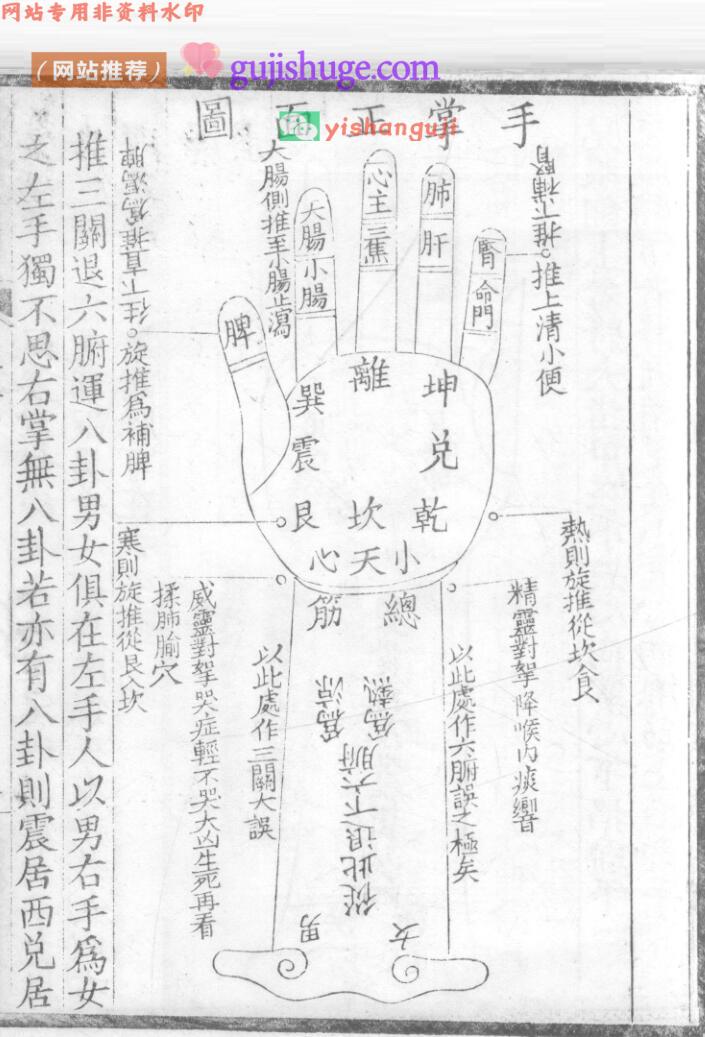 网站专用非资料水印
(网站推荐)
gujishuge.com
yishanguji
手掌正面圖
腎水
推下補腎
推上清小便
腎
命門
肺
肝
心主
三焦
大腸
小腸
大腸側推至小腸止瀉
脾
往下直推為瀉脾
旋推為補脾
離
坤
兌
乾
坎
艮
震
巽
小天心
總筋
熱則旋推從坎食
精靈對拏降喉內痰響
以此處作六腑誤之極矣
從此退下六腑為熱為涼
女
男
以此處作三關大誤
威靈對拏哭症輕不哭大凶生死再看
揉肺腧穴
寒則旋推從艮入坎
推三關退六腑運八卦男女俱在左手人以男右手爲女
之左手獨不思右掌無八卦若亦有八卦則震居西兌居